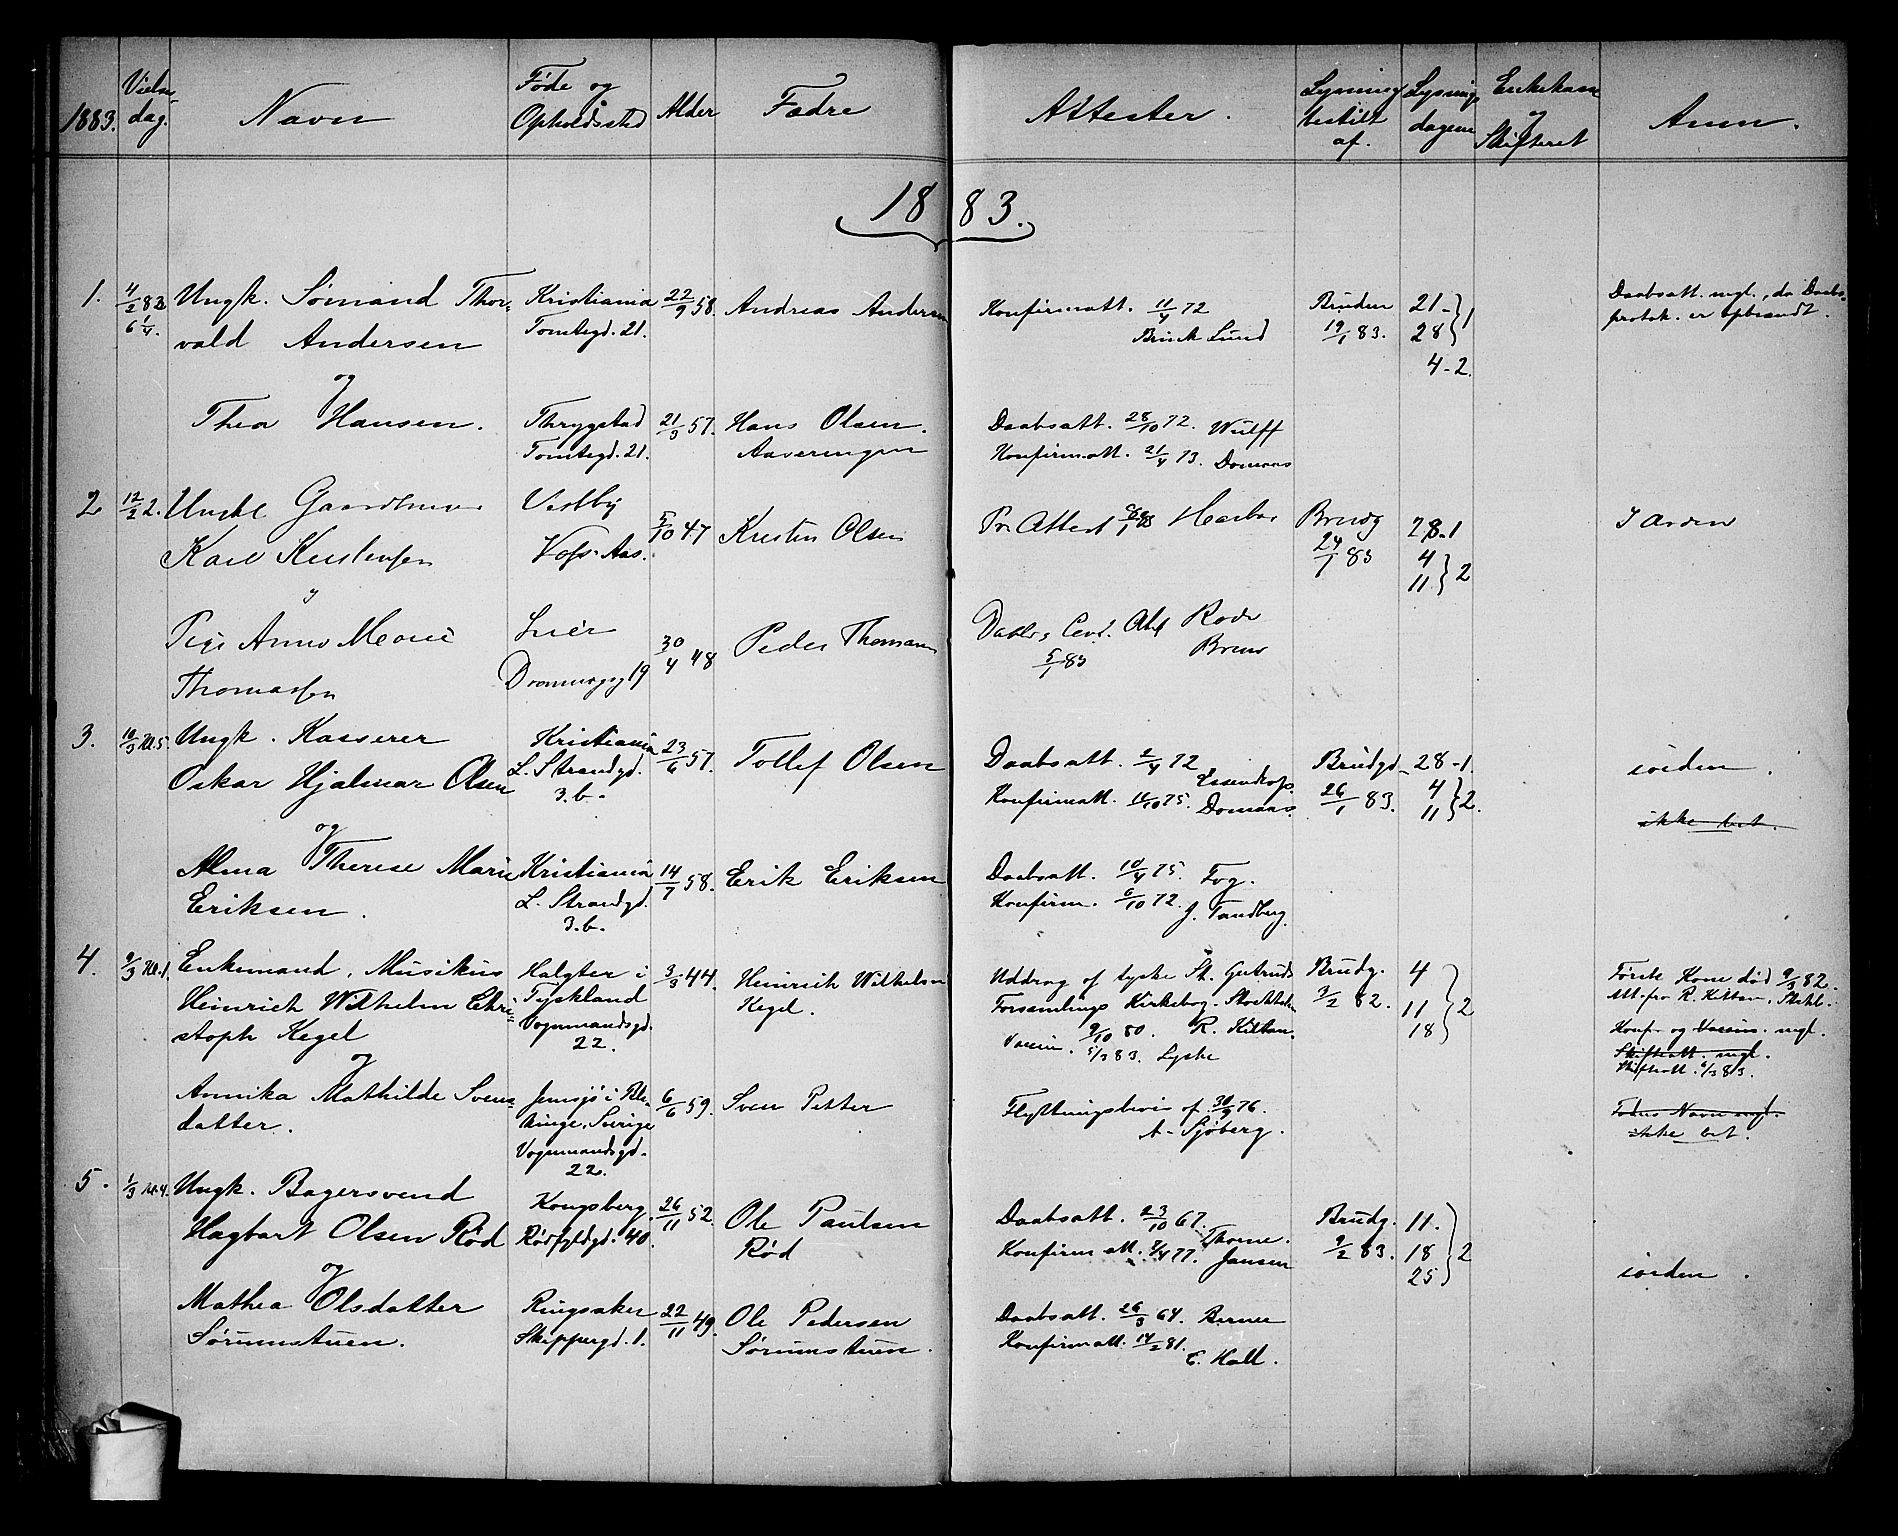 1883.
Vielsesdag.
Navn
Føde og
Opholdssted
Alder
Fædre
Attester.
Lysning
bestilt
af.
Lysnings
dagene
Enkekasse
og
Skifteret
Anm.
1883.
1. 4/2 83
6 1/4.
Ungk. Sømand Thor-
vald Andersen
Kristiania
Tomtegd. 21.
22/9 58.
Andreas Andersen
Konfirmatt. 11/4 72
Brinch Lund
Bruden
19/1 83.
21-
28 } 1
4-2.
Daabsatt. mgl., da Daabs-
protok. er opbrændt.
og
Thea Hansen.
Thrygstad
Tomtegd. 21.
21/3 57.
Hans Olsen.
Aaverengen
Daabsatt. 28/10 72. Wulff
Konfirmatt. 21/4 73. Domaas
2 12/2 2.
Ungkl Gaardbruger
Karl Kristensen
Vestby
Aas.
5/10 47
Kristen Olsen
Pr. Attest
Brudg
24/1 83
28-1
4
11 } 2
I Orden
Pige Anne Marie
Thomassen
Lier
19
30/4 48
Peder Thomasen
5/1 83
3. 10/3 Kl. 5.
Ungk. Kasserer
Oskar Hjalmar Olsen
Kristiania
L. Strandgd.
3.b.
23/6 57.
Tollef Olsen
Daabsatt. 2/4 72
Konfirmatt. 11/10 75. Domaas.
Brudgd.
26/1 83.
28-1.
4
11 } 2.
iorden.
ikke bet.
og
Alma Therese Marie
Eriksen.
Kristiania
L. Strandgd.
3.b.
14/7 58.
Erik Eriksen
Daabsatt. 10/4 75. Fog.
Konfirm. 6/10 72.
J. Tandberg.
4. 9/3 Kl. 1.
Enkemand, Musikus
Heinrich Wilhelm Chri-
stoph Kegel
Halgter i
Tyskland
Vognmandsgd.
22.
3/3 44.
Heinrich Wilhelm
Kegel.
Uddrag af tyske St. Gertruds
Forsamlings Kirkebog. Stockholm
9/10 80. R. Kittan.
Vaccin. 5/3 83. Lyshe
Brudg.
3/2 82.
4
11
18 } 2
Første Kone død 9/3 82.
Att. fra R. Kittan, Stokhl.
Konf. og Vaccins. mgl.
Skifteatt. mgl.
Skifteatt. 6/3 83.
og
Annika Mathilde Svens-
datter.
Jemsjö i Ble-
kinge, Sverige
Vognmandsgd.
22.
6/6 59.
Sven Petter
Flyttningsbevis af 30/9 76.
A. Sjöberg.
Fadrs Navn mgl.
ikke bet.
5. 1/3 Kl. 4.
Ungk. Bagersvend
Hagbart Olsen Rød
Kongsberg.
Rødfyldgd. 40.
26/11 52.
Ole Paulsen
Rød
Daabsatt. 23/10 67. Thorne.
Konfirmatt. 2/4 77. Jansen
Brudg.
9/2 83.
11.
18
25 } 2
iorden.
og
Mathea Olsdatter
Sørumstuen.
Ringsaker
Skippergd. 1.
22/11 49.
Ole Pedersen
Sørumstuen.
Daabsatt. 26/3 64. Berner
Konfirmatt. 14/2 81.
C. Hall.